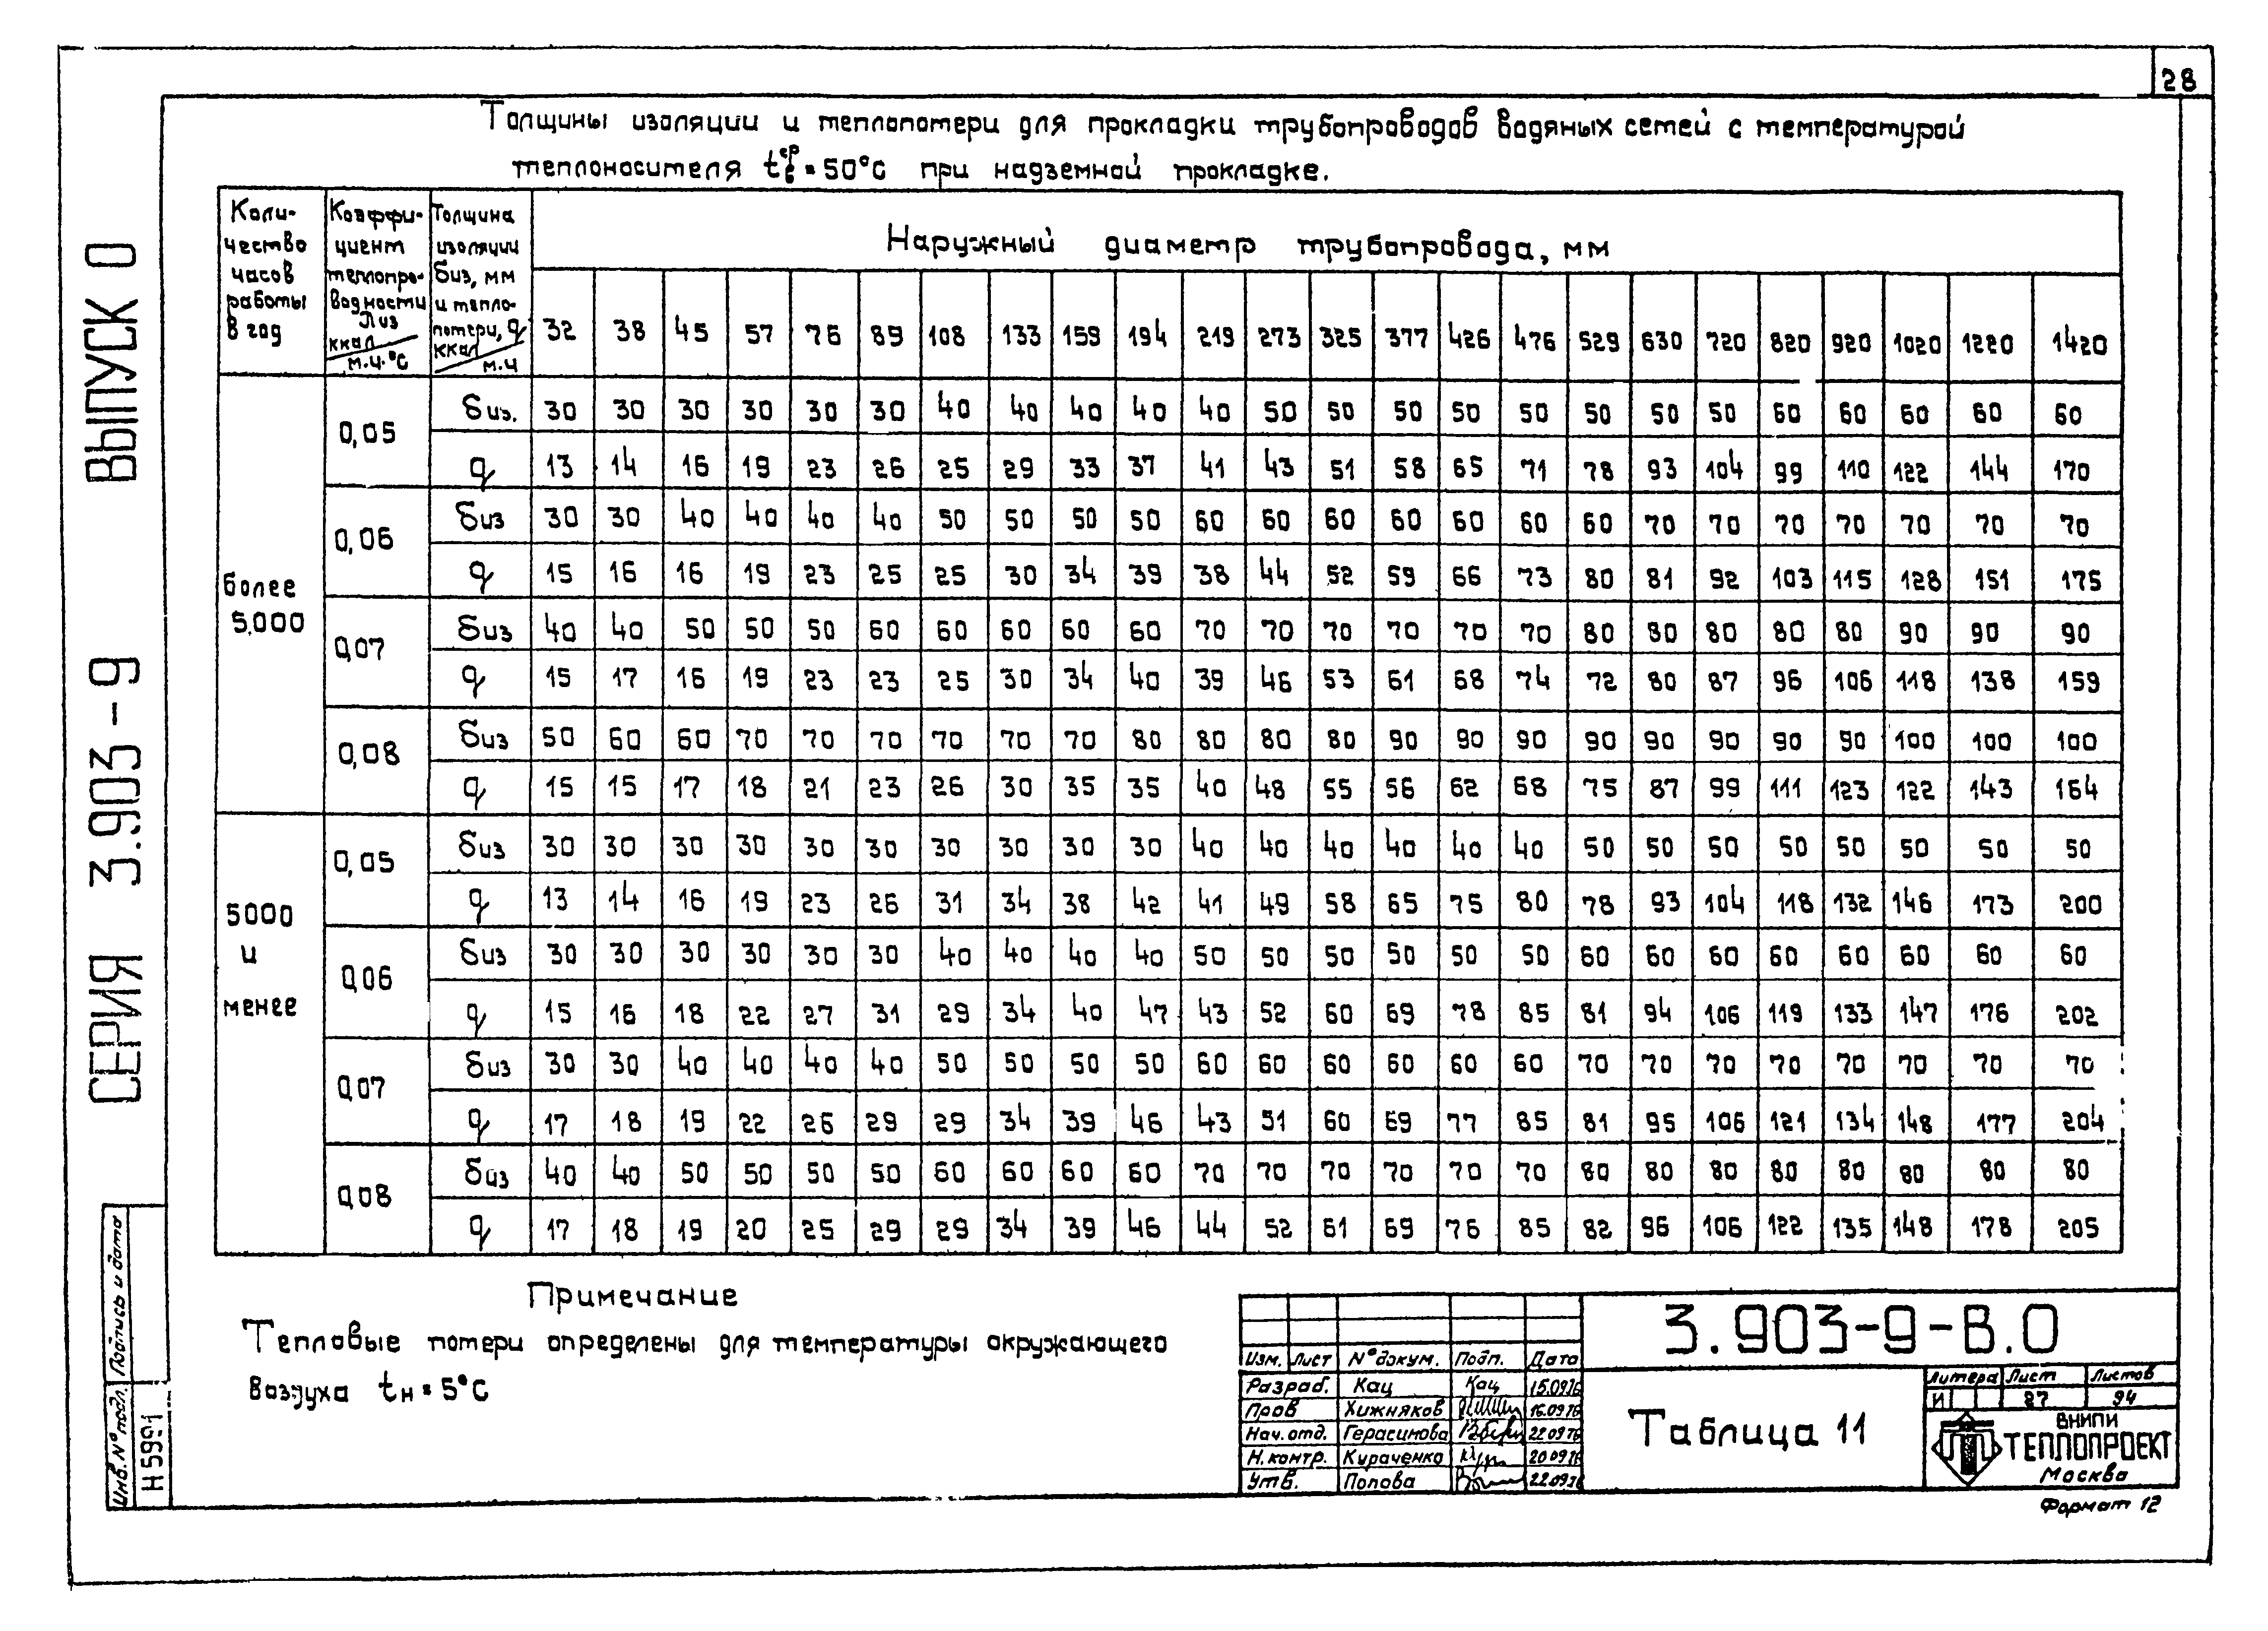 28
Толщины изоляции и теплопотери для прокладки трубопроводов водяных сетей с температурой
теплоносителя tᶜᵖв = 50°С при надземной прокладке.
Коли-
чество
часов
работы
в год
Коэффи-
циент
теплопро-
водности
λиз
ккал
м.ч.°С
Толщина
изоляции
δиз, мм
и тепло-
потери, q
ккал
м.ч
Наружный диаметр трубопровода, мм
32 38 45 57 76 89 108 133 159 194 219 273 325 377 426 476 529 630 720 820 920 1020 1220 1420
более
5.000
0,05
δиз. 30 30 30 30 30 30 40 40 40 40 40 50 50 50 50 50 50 50 50 60 60 60 60 60
q 13 14 16 19 23 26 25 29 33 37 41 43 51 58 65 71 78 93 104 99 110 122 144 170
0,06
δиз 30 30 40 40 40 40 50 50 50 50 60 60 60 60 60 60 60 70 70 70 70 70 70 70
q 15 16 16 19 23 25 25 30 34 39 38 44 52 59 66 73 80 81 92 103 115 128 151 175
0,07
δиз 40 40 50 50 50 60 60 60 60 60 70 70 70 70 70 70 80 80 80 80 80 90 90 90
q 15 17 16 19 23 23 25 30 34 40 39 46 53 61 68 74 72 80 87 96 106 118 138 159
0,08
δиз 50 60 60 70 70 70 70 70 70 80 80 80 80 90 90 90 90 90 90 90 90 100 100 100
q 15 15 17 18 21 23 26 30 35 35 40 48 55 56 62 68 75 87 99 111 123 122 143 164
5000
и
менее
0,05
δиз 30 30 30 30 30 30 30 30 30 30 40 40 40 40 40 40 50 50 50 50 50 50 50 50
q 13 14 16 19 23 26 31 34 38 42 41 49 58 65 75 80 78 93 104 118 132 146 173 200
0,06
δиз 30 30 30 30 30 30 40 40 40 40 50 50 50 50 50 50 60 60 60 60 60 60 60 60
q 15 16 18 22 27 31 29 34 40 47 43 52 60 69 78 85 81 94 106 119 133 147 176 202
0,07
δиз 30 30 40 40 40 40 50 50 50 50 60 60 60 60 60 60 70 70 70 70 70 70 70 70
q 17 18 19 22 26 29 29 34 39 46 43 51 60 69 77 85 81 95 106 121 134 148 177 204
0,08
δиз 40 40 50 50 50 50 60 60 60 60 70 70 70 70 70 70 80 80 80 80 80 80 80 80
q 17 18 19 20 25 29 29 34 39 46 44 52 61 69 76 85 82 96 106 122 135 148 178 205
Примечание
Тепловые потери определены для температуры окружающего
воздуха tн = 5°С
СЕРИЯ 3.903-9 ВЫПУСК 0
Инв.№подл. Подпись и дата
Н5991
Изм. Лист №докум. Подп. Дата
Разраб. Кац Кац 15.09.76
Пров Хижняков 16.09.76
Нач.отд. Герасимова 22.09.76
Н.контр. Кураченко 20.09.76
Утв. Попова 22.09.76
3.903-9-В.0
Таблица 11
Литера Лист Листов
И 27 94
ВНИПИ
ТЕПЛОПРОЕКТ
Москва
Формат 12